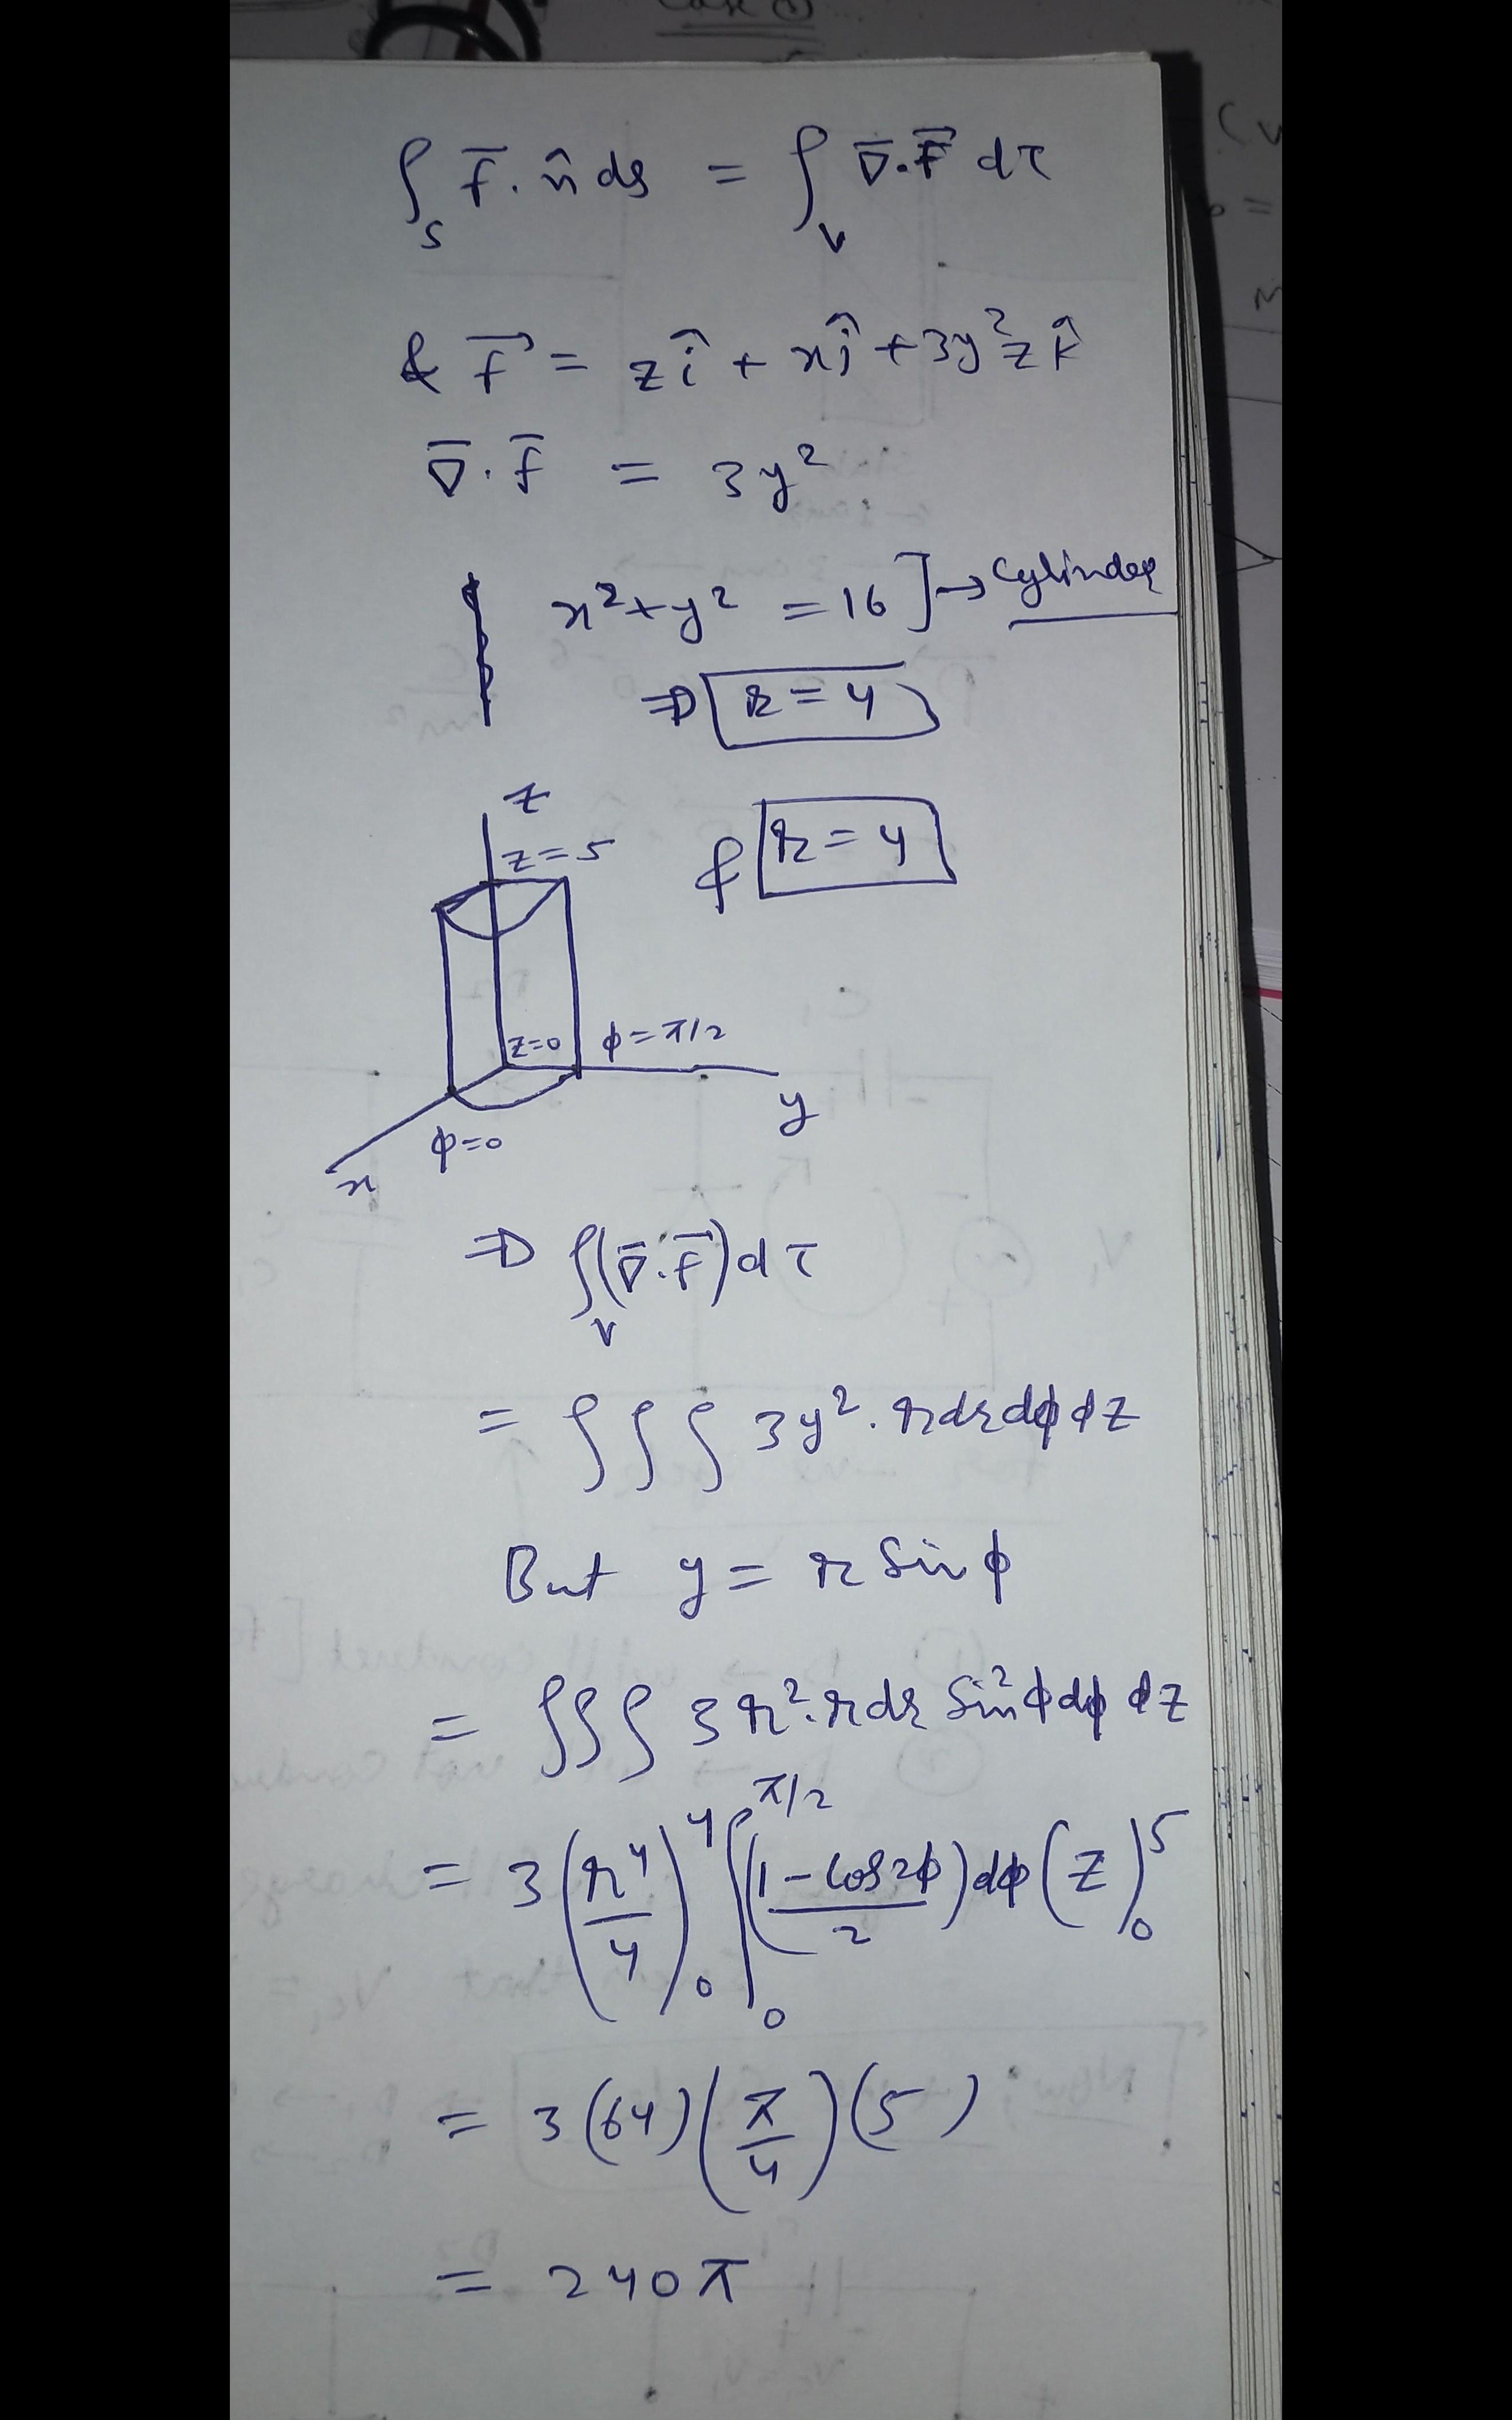 Case ①
∫_S F̄ . n̂ ds = ∫_V ∇̄ . F̄ dτ
& F⃗ = z î + x ĵ + 3y² z k̂
∇̄ . F̄ = 3y²
x² + y² = 16 ] → Cylinder
⇒ r = 4
z
z = 5
& r = 4
z=0
φ = π/2
y
φ=0
x
⇒ ∫_V (∇̄ . F⃗) dτ
= ∫∫∫ 3y² . r dr dφ dz
But y = r Sin φ
= ∫∫∫ 3 r² . r dr Sin²φ dφ dz
= 3 (r⁴/4)₀⁴ ∫₀^{π/2} ((1 - Cos 2φ)/2) dφ (z)₀⁵
= 3 (64) (π/4) (5)
= 240 π